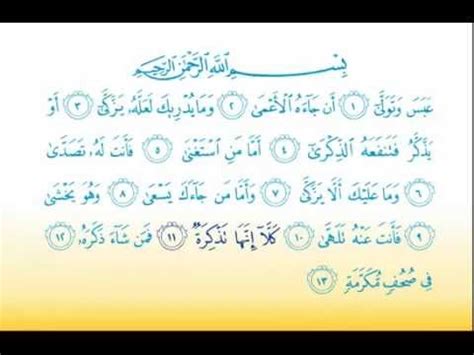 بِسْمِ اللَّهِ الرَّحْمَٰنِ الرَّحِيمِ
عَبَسَ وَتَوَلَّىٰ ١ أَن جَاءَهُ الْأَعْمَىٰ ٢ وَمَا يُدْرِيكَ لَعَلَّهُ يَزَّكَّىٰ ٣ أَوْ
يَذَّكَّرُ فَتَنفَعَهُ الذِّكْرَىٰ ٤ أَمَّا مَنِ اسْتَغْنَىٰ ٥ فَأَنتَ لَهُ تَصَدَّىٰ
٦ وَمَا عَلَيْكَ أَلَّا يَزَّكَّىٰ ٧ وَأَمَّا مَن جَاءَكَ يَسْعَىٰ ٨ وَهُوَ يَخْشَىٰ
٩ فَأَنتَ عَنْهُ تَلَهَّىٰ ١٠ كَلَّا إِنَّهَا تَذْكِرَةٌ ١١ فَمَن شَاءَ ذَكَرَهُ ١٢
فِي صُحُفٍ مُّكَرَّمَةٍ ١٣